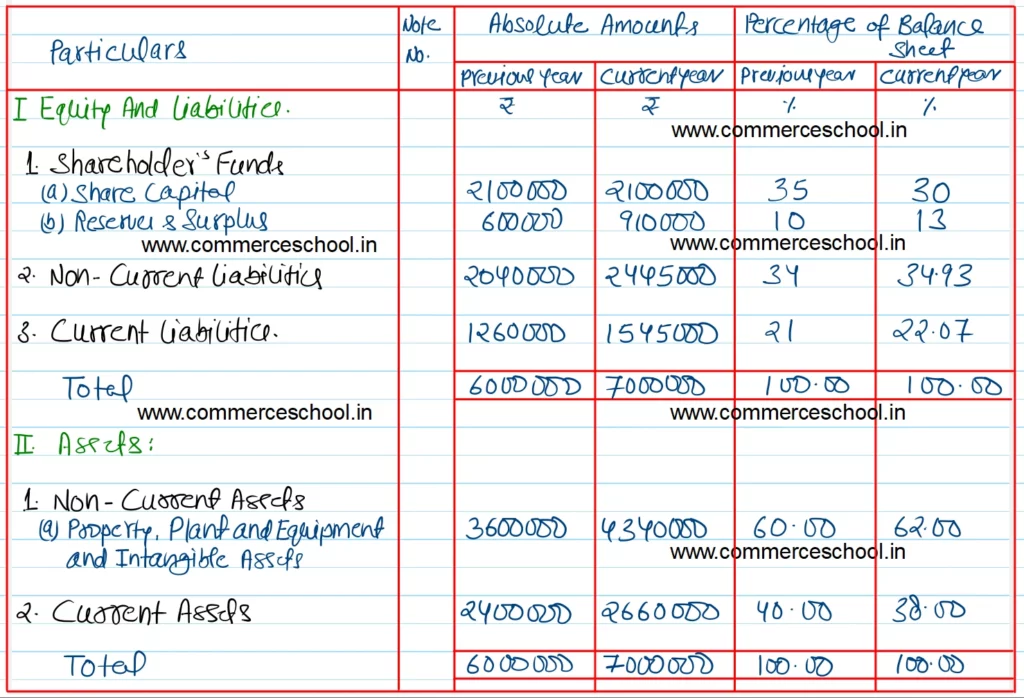 Particulars Note No. Absolute Amounts Percentage of Balance Sheet
Previous year Current year Previous year Current year
I Equity And Liabilities. ₹ ₹ % %
www.commerceschool.in
1. Shareholder's Funds
(a) Share Capital 2100000 2100000 35 30
(b) Reserves & Surplus 600000 910000 10 13
www.commerceschool.in www.commerceschool.in
2. Non-Current Liabilities 2040000 2445000 34 34.93
3. Current Liabilities. 1260000 1545000 21 22.07
Total 6000000 7000000 100.00 100.00
www.commerceschool.in www.commerceschool.in
II. Assets:
1. Non-Current Assets
(a) Property, Plant and Equipment 3600000 4340000 60.00 62.00
and Intangible Assets www.commerceschool.in
2. Current Assets 2400000 2660000 40.00 38.00
Total 6000000 7000000 100.00 100.00